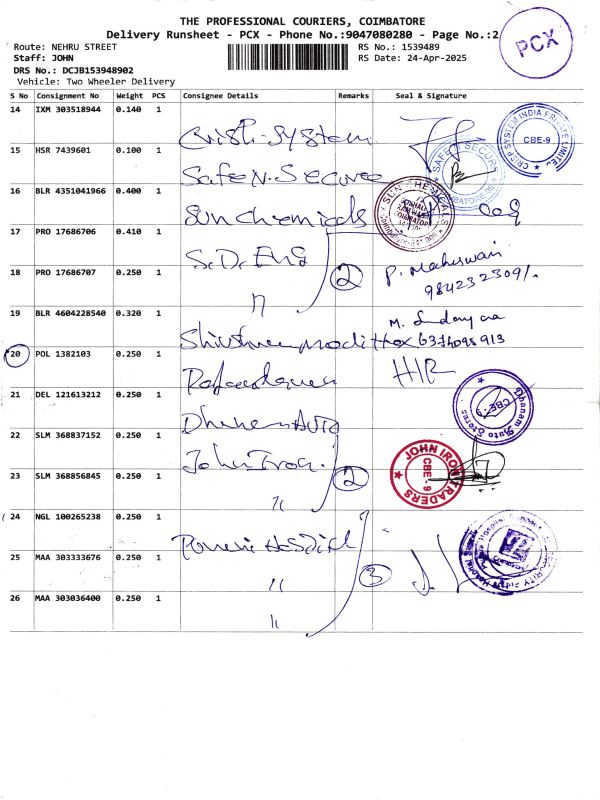 THE PROFESSIONAL COURIERS, COIMBATORE
Delivery Runsheet - PCX - Phone No.:9047080280 - Page No.:2
PCX
Route: NEHRU STREET
RS No.: 1539489
Staff: JOHN
RS Date: 24-Apr-2025
DRS No.: DCJB153948902
Vehicle: Two Wheeler Delivery
S No Consignment No Weight PCS Consignee Details Remarks Seal & Signature
14 IXM 303518944 0.140 1
CRISP SYSTEM INDIA PRIVATE LIMITED CBE-9
15 HSR 7439601 0.100 1 Safe N. Secure
SAFE N SECURE
16 BLR 4351041966 0.400 1 Sun chemicals
SUN CHEMICALS
17 PRO 17686706 0.410 1 S.D. Eng
18 PRO 17686707 0.250 1 " 2 P. Maheswari
9842323091.
19 BLR 4604228540 0.320 1 M.
6374098913
20 POL 1382103 0.250 1 H/R
21 DEL 121613212 0.250 1
Dhanam Auto Stores CBE-9
22 SLM 368837152 0.250 1 John Iron
JOHN IRON TRADERS CBE-9
23 SLM 368856845 0.250 1 " 2
24 NGL 100265238 0.250 1
25 MAA 303333676 0.250 1 " 3
26 MAA 303036400 0.250 1 "